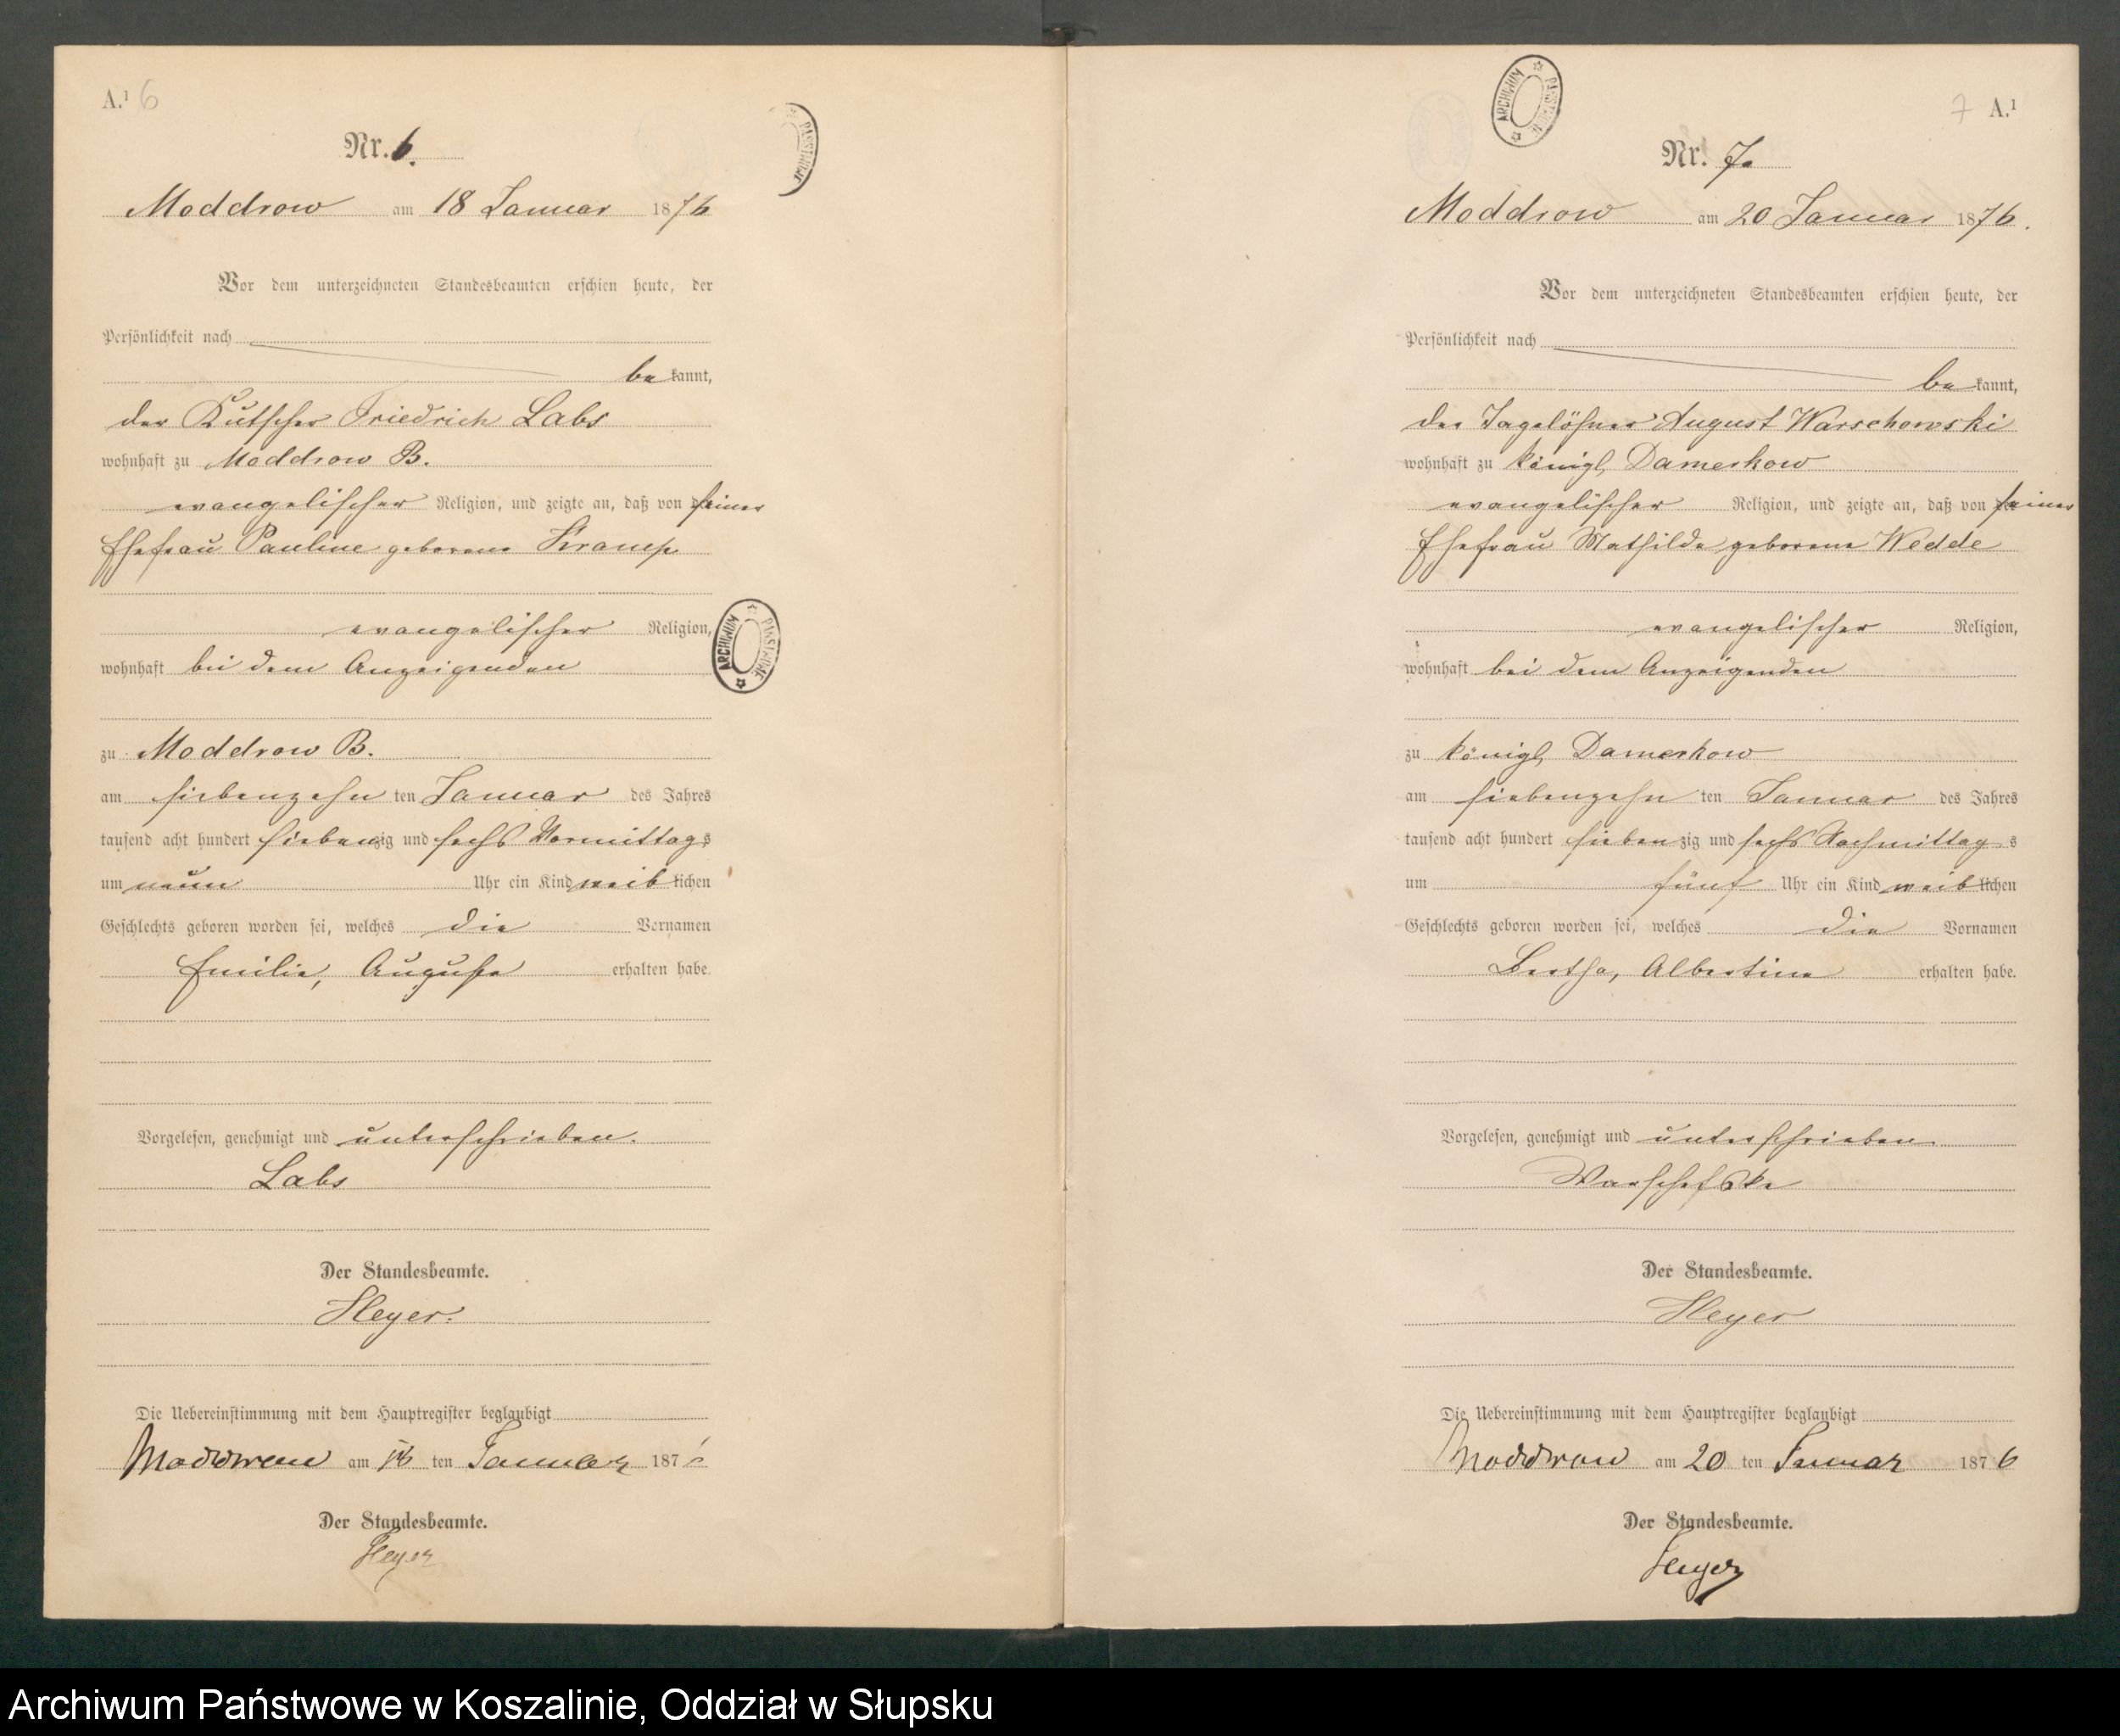 A.¹ 6
Nr. 6.
Moddrow am 18 Januar 1876
Vor dem unterzeichneten Standesbeamten erschien heute, der
Persönlichkeit nach
bekannt,
der Kutscher Friedrich Labs
wohnhaft zu Moddrow B.
evangelischer Religion, und zeigte an, daß von seiner
Ehefrau Pauline geborene Kramp
evangelischer Religion,
wohnhaft bei dem Anzeigenden
zu Moddrow B.
am siebenzehn ten Januar des Jahres
tausend acht hundert siebenzig und sechs Vormittags
um neun Uhr ein Kind weiblichen
Geschlechts geboren worden sei, welches die Vornamen
Emilie, Auguste erhalten habe.
Vorgelesen, genehmigt und unterschrieben.
Labs
Der Standesbeamte.
Heyer.
Die Uebereinstimmung mit dem Hauptregister beglaubigt
Moddrow am 18 ten Januar 187
Der Standesbeamte.
Heyer
ARCHIWUM PAŃSTWOWE
7 A.¹
Nr. 7.
Moddrow am 20 Januar 1876.
Vor dem unterzeichneten Standesbeamten erschien heute, der
Persönlichkeit nach
bekannt,
der Tagelöhner August Warschowski
wohnhaft zu königl. Damerkow
evangelischer Religion, und zeigte an, daß von seiner
Ehefrau Mathilde geborene Wedde
evangelischer Religion,
wohnhaft bei dem Anzeigenden
zu königl. Damerkow
am siebenzehn ten Januar des Jahres
tausend acht hundert siebenzig und sechs Nachmittags
um fünf Uhr ein Kind weiblichen
Geschlechts geboren worden sei, welches die Vornamen
Bertha, Albertine erhalten habe.
Vorgelesen, genehmigt und unterschrieben
Warschefske
Der Standesbeamte.
Heyer
Die Uebereinstimmung mit dem Hauptregister beglaubigt
Moddrow am 20 ten Januar 1876
Der Standesbeamte.
Heyer
ARCHIWUM PAŃSTWOWE
Archiwum Państwowe w Koszalinie, Oddział w Słupsku